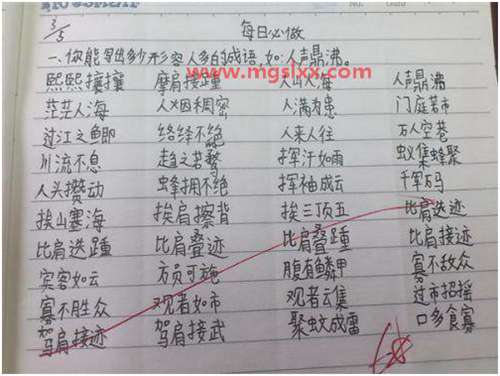 3/5
每日必做
一、你能写出多少形容人多的成语,如:人声鼎沸。
www.mgslxx.com
熙熙攘攘 摩肩接踵 人山人海 人声鼎沸
茫茫人海 人烟稠密 人满为患 门庭若市
过江之鲫 络绎不绝 人来人往 万人空巷
川流不息 趋之若鹜 挥汗如雨 蚁集蜂聚
人头攒动 蜂拥不绝 挥袖成云 千军万马
挨山塞海 挨肩擦背 挨三顶五 比肩迭迹
比肩迭踵 比肩叠迹 比肩叠踵 比肩接迹
宾客如云 方员可施 腹有鳞甲 寡不敌众
寡不胜众 观者如市 观者云集 过市招摇
驾肩接迹 驾肩接武 聚蚊成雷 口多食寡